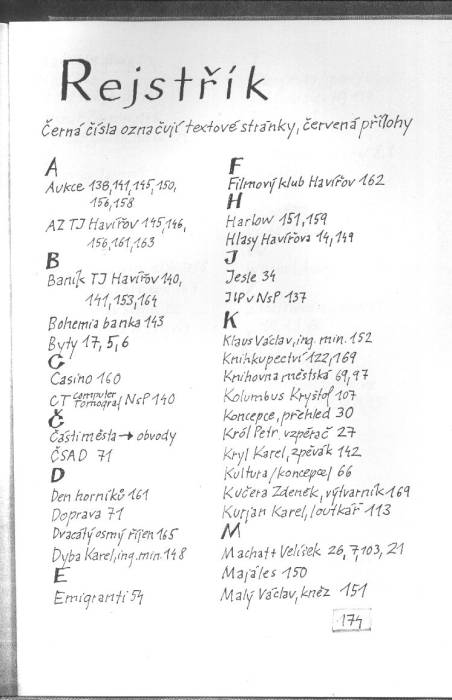 Rejstřík
Černá čísla označují textové stránky, červená přílohy
A
Aukce 138,141,145,150,
156,158
AZ TJ Havířov 145,146,
156,161,163
B
Baník TJ Havířov 140,
141,153,164
Bohemia banka 143
Byty 17,5,6
C
Casino 160
CT computer tomograf NsP 140
Č
Části města → obvody
ČSAD 71
D
Den horníků 161
Doprava 71
Dvacátý osmý říjen 165
Dyba Karel, ing. min. 148
E
Emigranti 54
F
Filmový klub Havířov 162
H
Harlow 151,159
Hlasy Havířova 14,149
J
Jesle 34
JIP v NsP 137
K
Klaus Václav, ing. min. 152
Knihkupectví 122,169
Knihovna městská 69,97
Kolumbus Kryštof 107
Koncepce, přehled 30
Król Petr vzpěrač 27
Kryl Karel, zpěvák 142
Kultura/koncepce/ 66
Kučera Zdeněk, výtvarník 169
Kurjan Karel, loutkář 113
M
Machatt Velísek 26,7,103,21
Majáles 150
Malý Václav, kněz 151
174